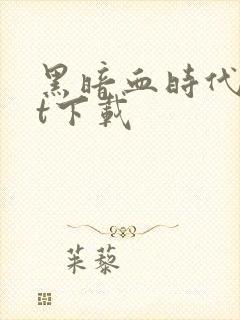 黑暗血時代
t下載
茱藜